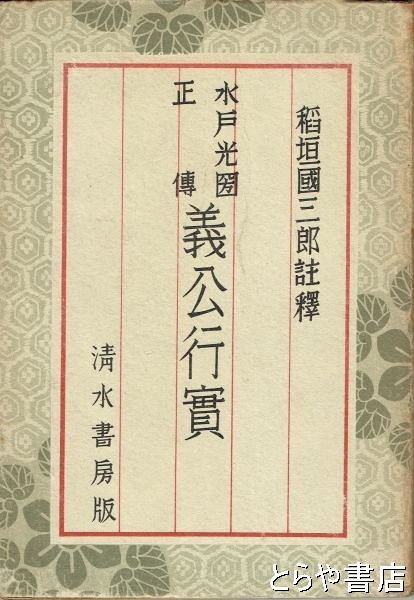 稻垣國三郎註釋
水戸光圀
正傳
義公行實
清水書房版
とらや書店